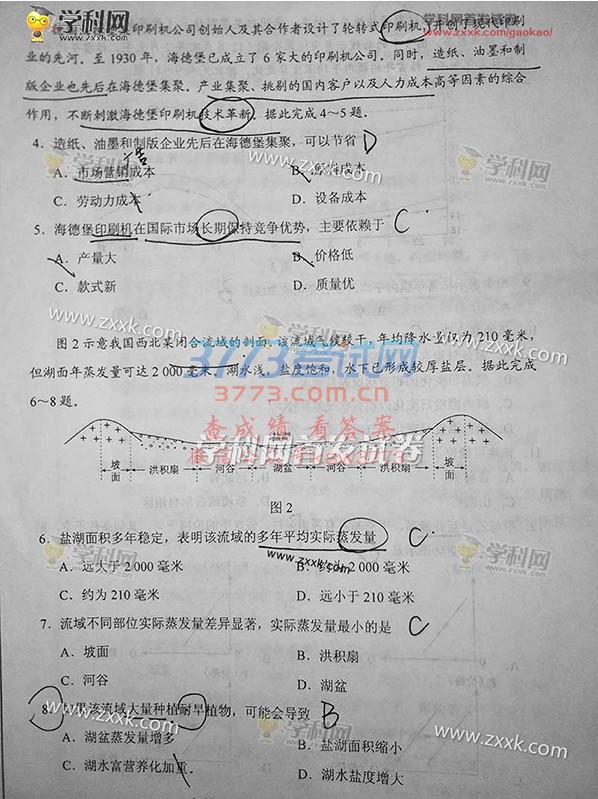 学科网 学科网首发试卷
www.zxxk.com/gaokao/
印刷机公司创始人及其合作者设计了轮转式印刷机,开创了现代印刷
业的先河。至 1930 年,海德堡已成立了 6 家大的印刷公司。同时,造纸、油墨和制
版企业也先后在海德堡集聚。产业集聚、挑剔的国内客户以及人力成本高等因素的综合
作用,不断刺激海德堡印刷机技术革新。据此完成 4~5 题。
4. 造纸、油墨和制版企业先后在海德堡集聚,可以节省 D
A. 市场营销成本 B. 原料成本
C. 劳动力成本 D. 设备成本
5. 海德堡印刷机在国际市场长期保持竞争优势,主要依赖于 C
A. 产量大 B. 价格低
C. 款式新 D. 质量优
图 2 示意我国西北某闭合流域的剖面。该流域气候较干,年均降水量仅为 210 毫米,
但湖面年蒸发量可达 2 000 毫米,湖水浅,盐度饱和,水下已形成较厚盐层。据此完成
6~8 题。
3773考试网
3773.com.cn
查成绩 看答案
学科网首发试卷
坡面 洪积扇 河谷 湖盆 河谷 洪积扇 坡面
图 2
6. 盐湖面积多年稳定,表明该流域的多年平均实际蒸发量 C
A. 远大于 2 000 毫米 B. 约为 2 000 毫米
C. 约为 210 毫米 D. 远小于 210 毫米
7. 流域不同部位实际蒸发量差异显著,实际蒸发量最小的是 C
A. 坡面 B. 洪积扇
C. 河谷 D. 湖盆
8. 如果该流域大量种植耐旱植物,可能会导致 B
A. 湖盆蒸发量增多 B. 盐湖面积缩小
C. 湖水富营养化加重 D. 湖水盐度增大
学科网
www.zxxk.com